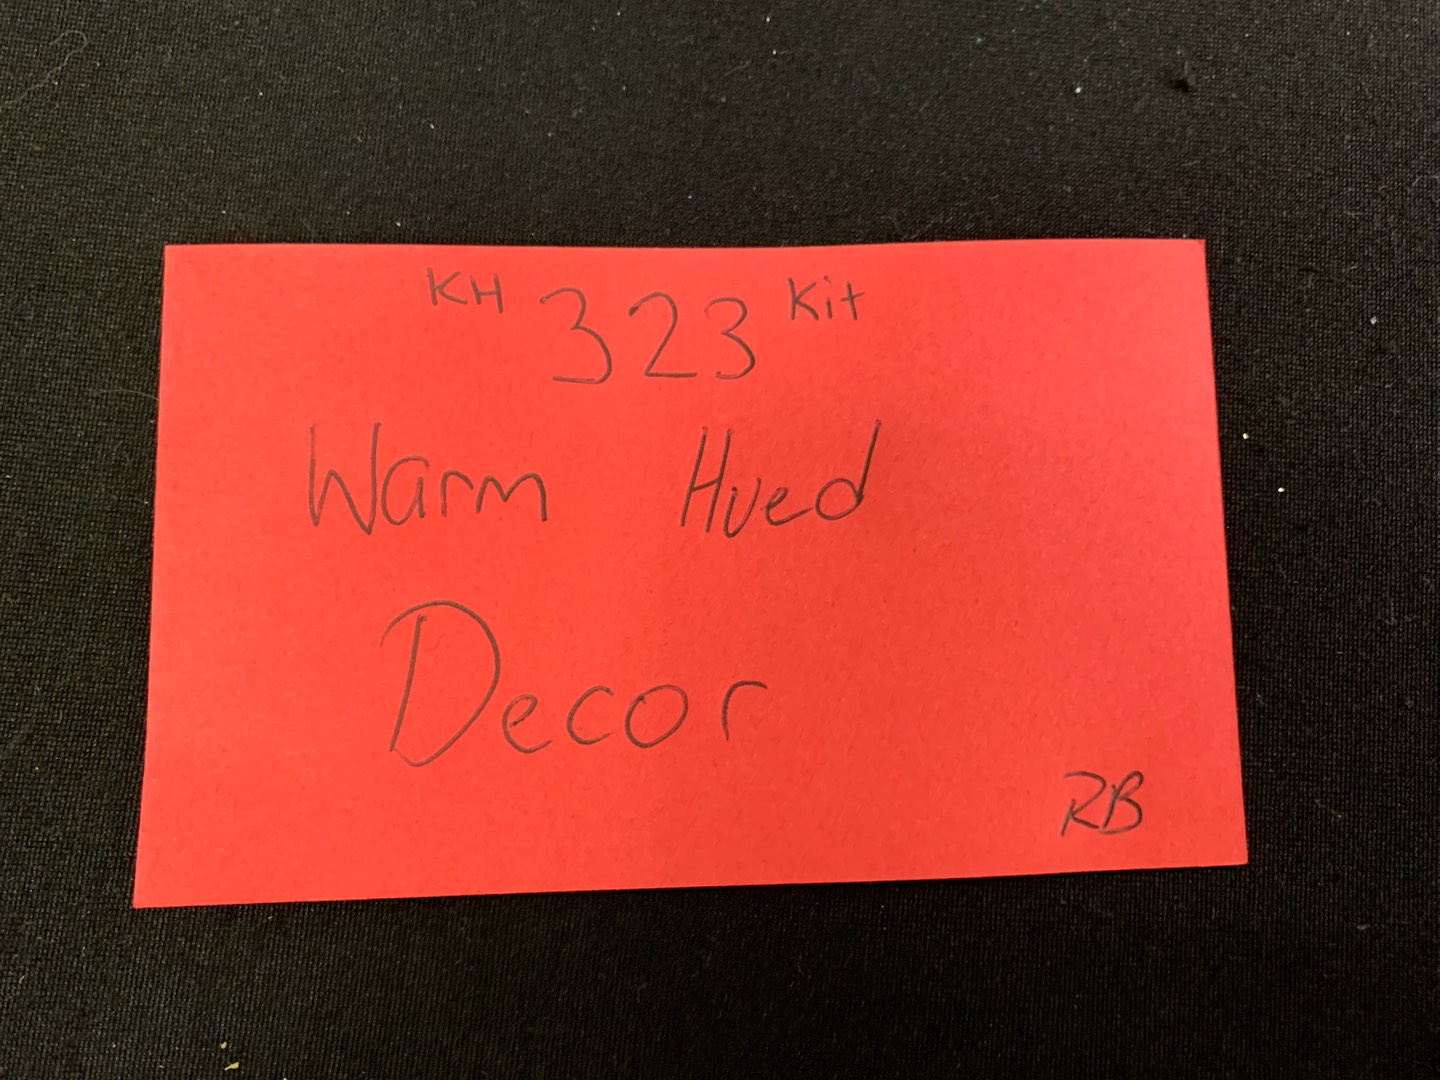 KH 323 Kit
Warm Hued
Decor
RB